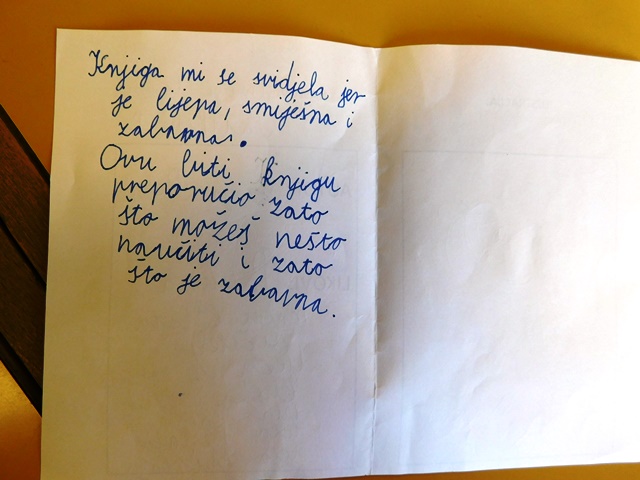 Knjiga mi se svidjela jer
je lijepa, smiješna i
zabavna.
Ovu
knjigu
preporučio zato
što možeš nešto
naučiti i zato
što je zabavna.